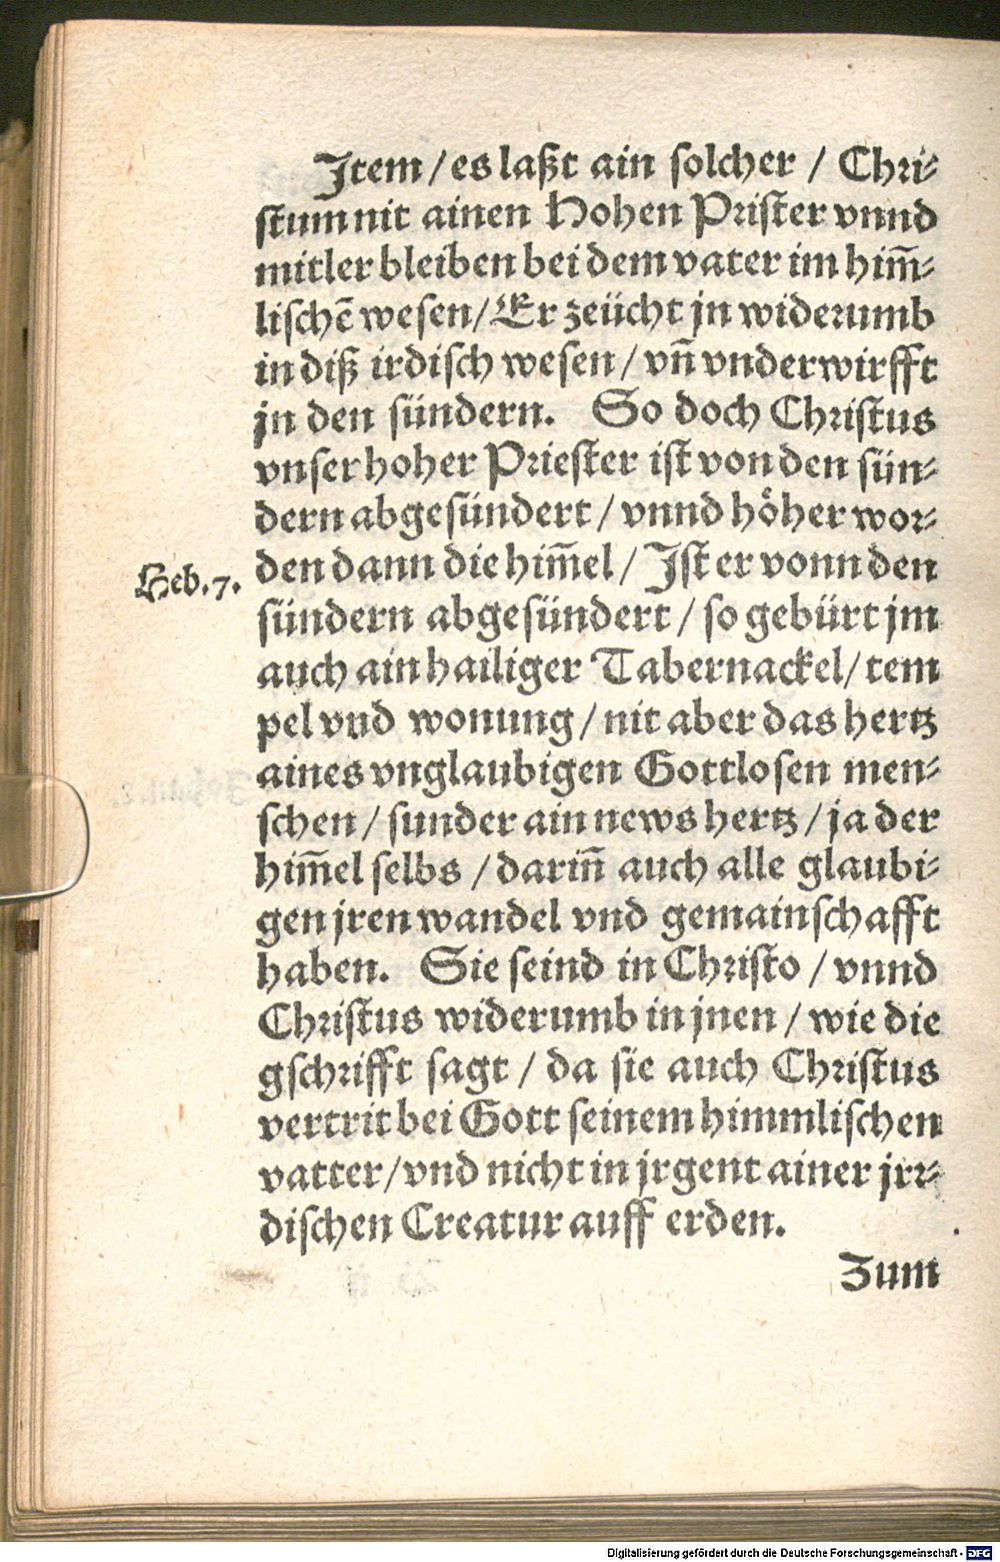 Item / es laßt ain solcher / Chri⸗
stum nit ainen Hohen Prister vnnd
mitler bleiben bei dem vater im him̅⸗
lischē wesen / Er zeücht jn widerumb
in diß irdisch wesen / vn̅ vnderwirfft
jn den sündern. So doch Christus
vnser hoher Priester ist von den sün⸗
dern abgesündert / vnnd hoͤher wor⸗
Heb. 7. den dann die him̅el / Ist er vonn den
sündern abgesündert / so gebürt jm
auch ain hailiger Tabernackel / tem
pel vnd wonung / nit aber das hertz
aines vnglaubigen Gottlosen men⸗
schen / sunder ain news hertz / ja der
him̅el selbs / darin̅ auch alle glaubi⸗
gen jren wandel vnd gemainschafft
haben. Sie seind in Christo / vnnd
Christus widerumb in jnen / wie die
gschrifft sagt / da sie auch Christus
vertrit bei Gott seinem himmlischen
vatter / vnd nicht in jrgent ainer jrr⸗
dischen Creatur auff erden.
Zum
Digitalisierung gefördert durch die Deutsche Forschungsgemeinschaft - DFG